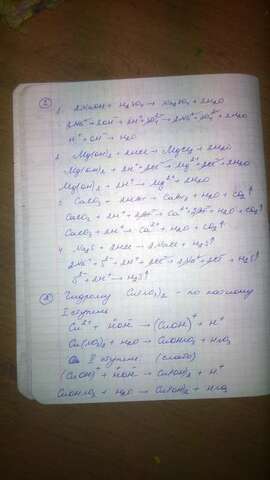 ②
1. 2NaOH + H₂SO₄ → Na₂SO₄ + 2H₂O
2Na⁺ + 2OH⁻ + 2H⁺ + SO₄²⁻ → 2Na⁺ + SO₄²⁻ + 2H₂O
H⁺ + OH⁻ → H₂O
2. Mg(OH)₂ + 2HCl → MgCl₂ + 2H₂O
Mg(OH)₂ + 2H⁺ + 2Cl⁻ → Mg²⁺ + 2Cl⁻ + 2H₂O
Mg(OH)₂ + 2H⁺ → Mg²⁺ + 2H₂O
CaCO₃ + 2HBr → CaBr₂ + H₂O + CO₂↑
CaCO₃ + 2H⁺ + 2Br⁻ → Ca²⁺ + 2Br⁻ + H₂O + CO₂↑
CaCO₃ + 2H⁺ → Ca²⁺ + H₂O + CO₂↑
4. Na₂S + 2HCl → 2NaCl + H₂S↑
2Na⁺ + S²⁻ + 2H⁺ + 2Cl⁻ → 2Na⁺ + 2Cl⁻ + H₂S↑
S²⁻ + 2H⁺ → H₂S↑
Гидролиз Cu(NO₃)₂ - по катиону
I ступень
Cu²⁺ + HOH → (CuOH)⁺ + H⁺
Cu(NO₃)₂ + H₂O → CuOHNO₃ + HNO₃
II ступень (слабо)
(CuOH)⁺ + HOH → Cu(OH)₂ + H⁺
CuOHNO₃ + H₂O → Cu(OH)₂ + HNO₃